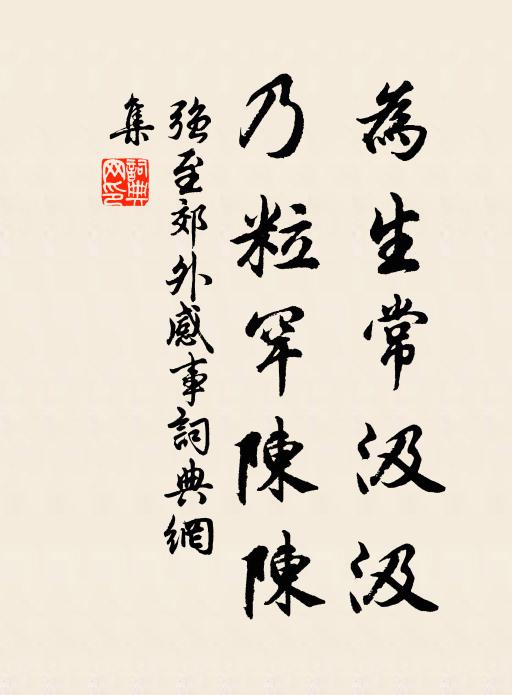 為生常汲汲
乃粒罕陳陳
強至郊外感事詞典網
集
詞典
网印